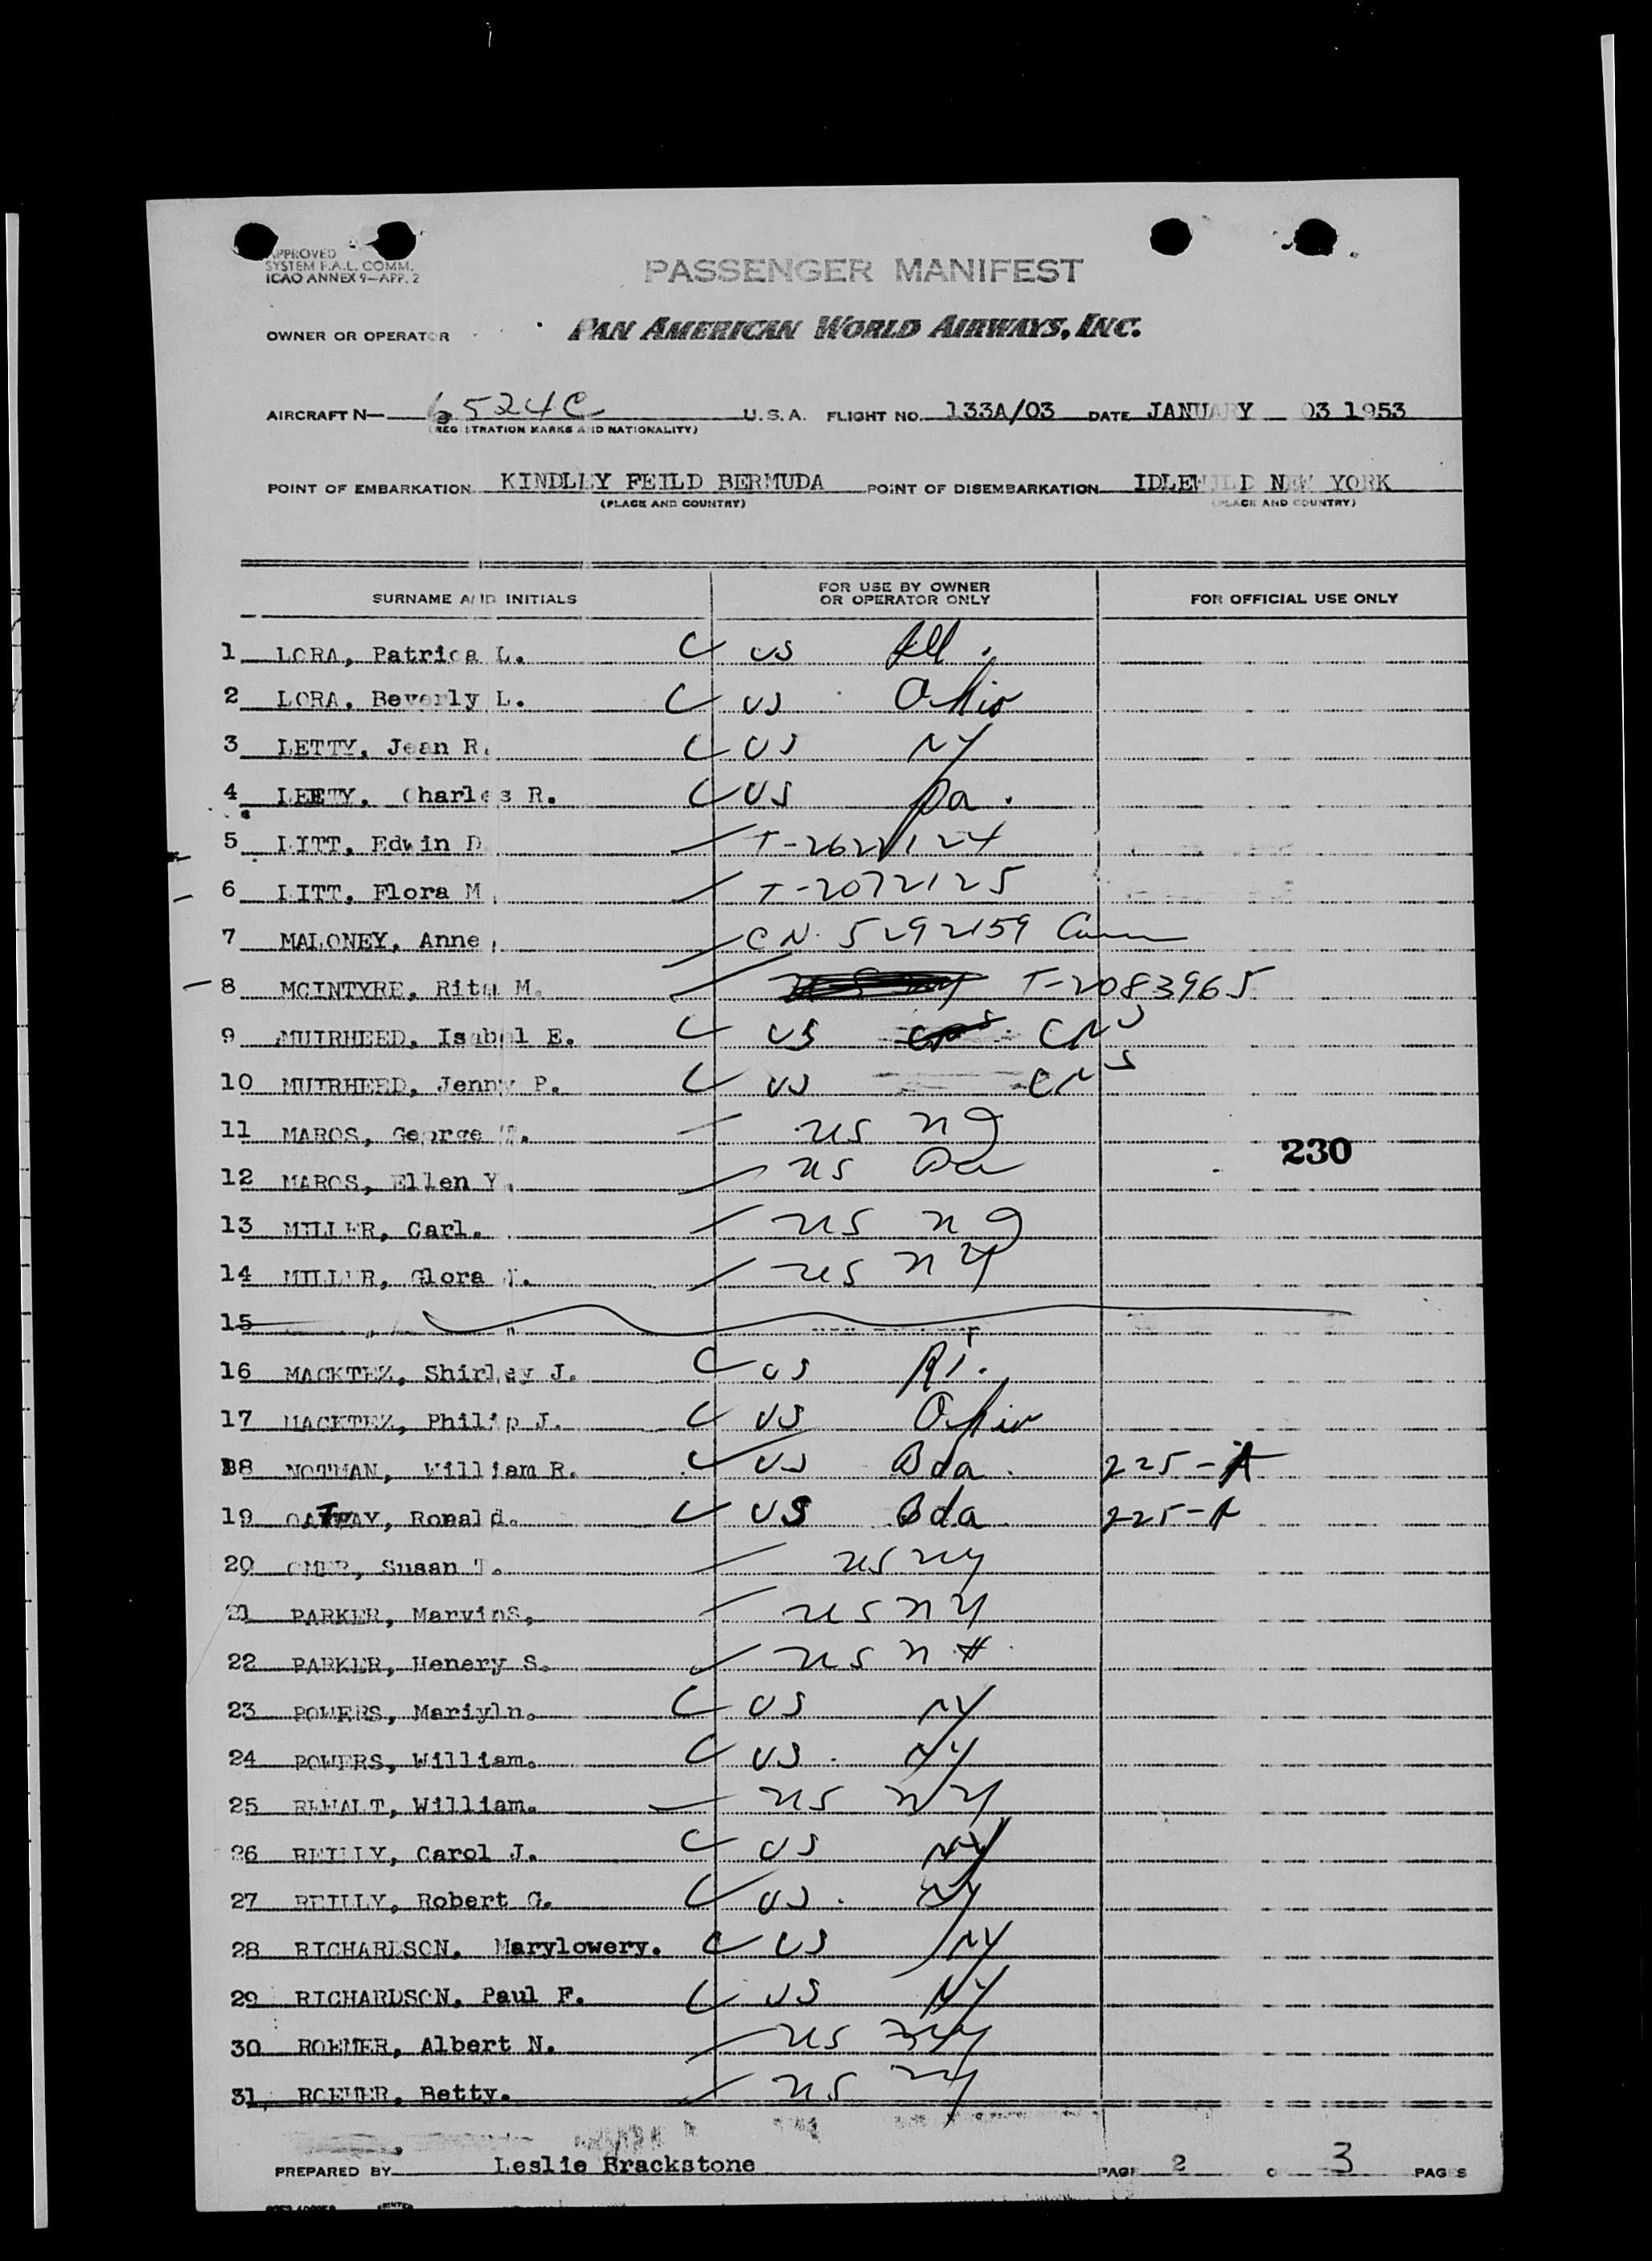 APPROVED
SYSTEM F.A.L. COMM.
ICAO ANNEX 9—APP. 2
PASSENGER MANIFEST
OWNER OR OPERATOR PAN AMERICAN WORLD AIRWAYS, INC.
AIRCRAFT N— 6524C U.S.A. FLIGHT NO. 133A/03 DATE JANUARY 03 1953
(REGISTRATION MARKS AND NATIONALITY)
POINT OF EMBARKATION KINDLEY FEILD BERMUDA POINT OF DISEMBARKATION IDLEWILD NEW YORK
(PLACE AND COUNTRY) (PLACE AND COUNTRY)
SURNAME AND INITIALS FOR USE BY OWNER OR OPERATOR ONLY FOR OFFICIAL USE ONLY
1 LORA, Patrica L. C US Ill.
2 LORA, Beverly L. C US Ohio
3 LETTY, Jean R. C US NY
4 LEETY, Charles R. C US Pa.
5 LITT, Edwin D
6 LITT, Flora M T-2072125
7 MALONEY, Anne, CN. 5292159
8 MCINTYRE, Rita M. T-2083965
9 MUIRHEED, Isabel E. C US CNS
10 MUIRHEED, Jenny P. C US CNS
11 MAROS, George T. US NJ
230
12 MAROS, Ellen Y. US Pa
13 MILLER, Carl. US NJ
14 MILLER, Glora US NY
15
16 MACKTEZ, Shirley J. C US RI.
17 MACKTEZ, Philip J. C US Ohio
18 NOTMAN, William R. C US Bda. 225-A
19 OATWAY, Ronald. C US Bda 225-A
20 OMER, Susan T. US NY
21 PARKER, MarvinS, US NY
22 PARKER, Henery S. US N
23 POWERS, Mariyln. C US NY
24 POWERS, William. C US. NY
25 REWALT, William. US NY
26 REILLY, Carol J. C US NY
27 REILLY, Robert G. C US. NY
28 RICHARDSON, Marylowery. C US NY
29 RICHARDSON, Paul F. C US NY
30 ROEMER, Albert N. US NY
31, ROEMER, Betty. US NY
PREPARED BY Leslie Brackstone PAGE 2 O 3 PAGES